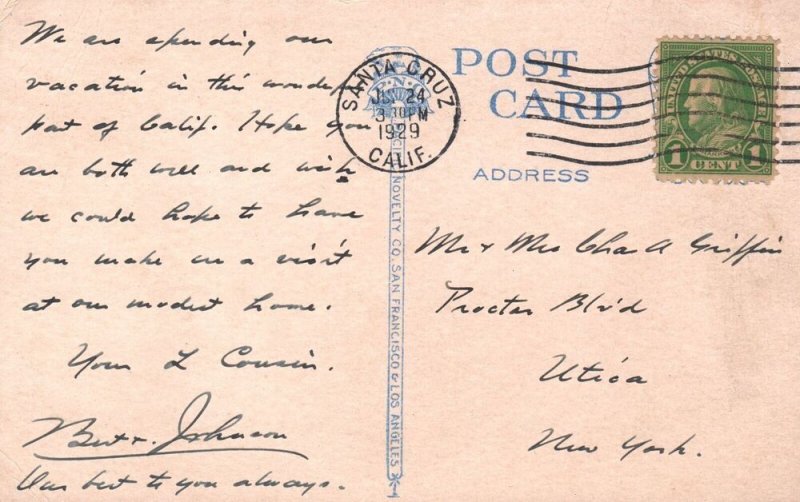 We are spending our
vacation in this wonderful
part of Calif. Hope you
are both well and wish
we could hope to have
you make us a visit
at our modest home.
Your L Cousin.
Bert. Johnson
Our best to you always.
SANTA CRUZ
24
3 30PM
1929
CALIF.
P.N.
NOVELTY CO. SAN FRANCISCO & LOS ANGELES
POST
CARD
ADDRESS
UNITED STATES POSTAGE
1 CENT 1
Mr & Mrs Cha A Griffin
Proctor Blvd
Utica
New York.